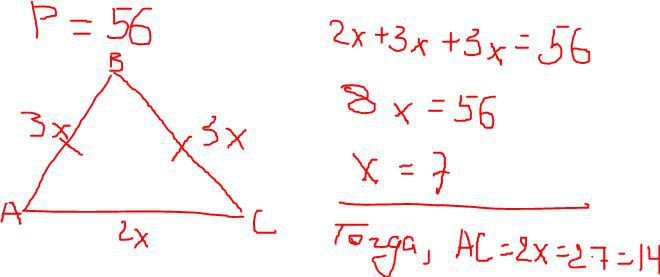 P = 56
B
3x 3x
A C
2x
2x+3x+3x=56
8x=56
x=7
Тогда, AC=2x=2·7=14